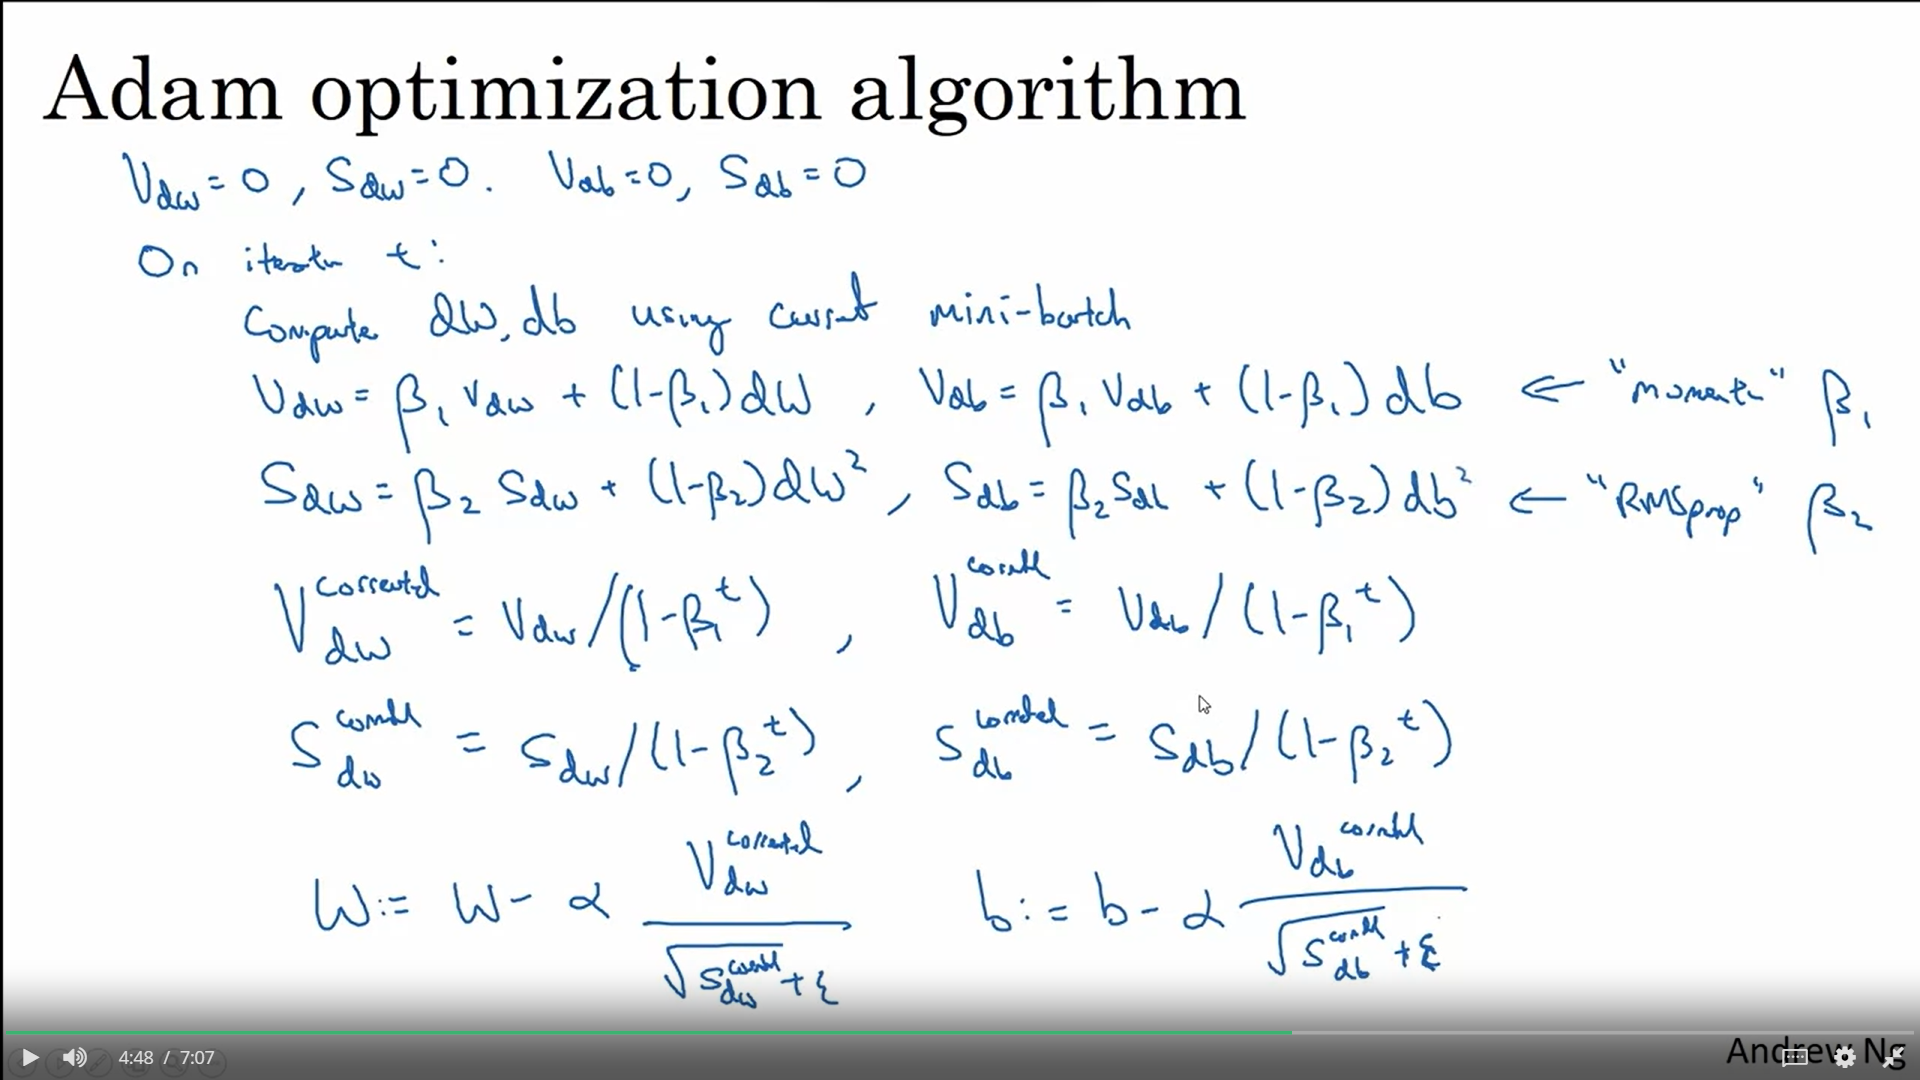 Adam optimization algorithm
V_dw = 0, S_dw = 0. V_db = 0, S_db = 0
On iteratn t:
Compute dW, db using current mini-batch
V_dw = β₁ V_dw + (1-β₁) dW, V_db = β₁ V_db + (1-β₁) db ← "momentum" β₁
S_dw = β₂ S_dw + (1-β₂) dW², S_db = β₂ S_db + (1-β₂) db² ← "RMSprop" β₂
V_dw^corrected = V_dw / (1-β₁^t), V_db^corrected = V_db / (1-β₁^t)
S_dw^corrected = S_dw / (1-β₂^t), S_db^corrected = S_db / (1-β₂^t)
W := W - α V_dw^corrected / (√S_dw^corrected + ε) b := b - α V_db^corrected / (√S_db^corrected + ε)
4:48 / 7:07
Andrew Ng